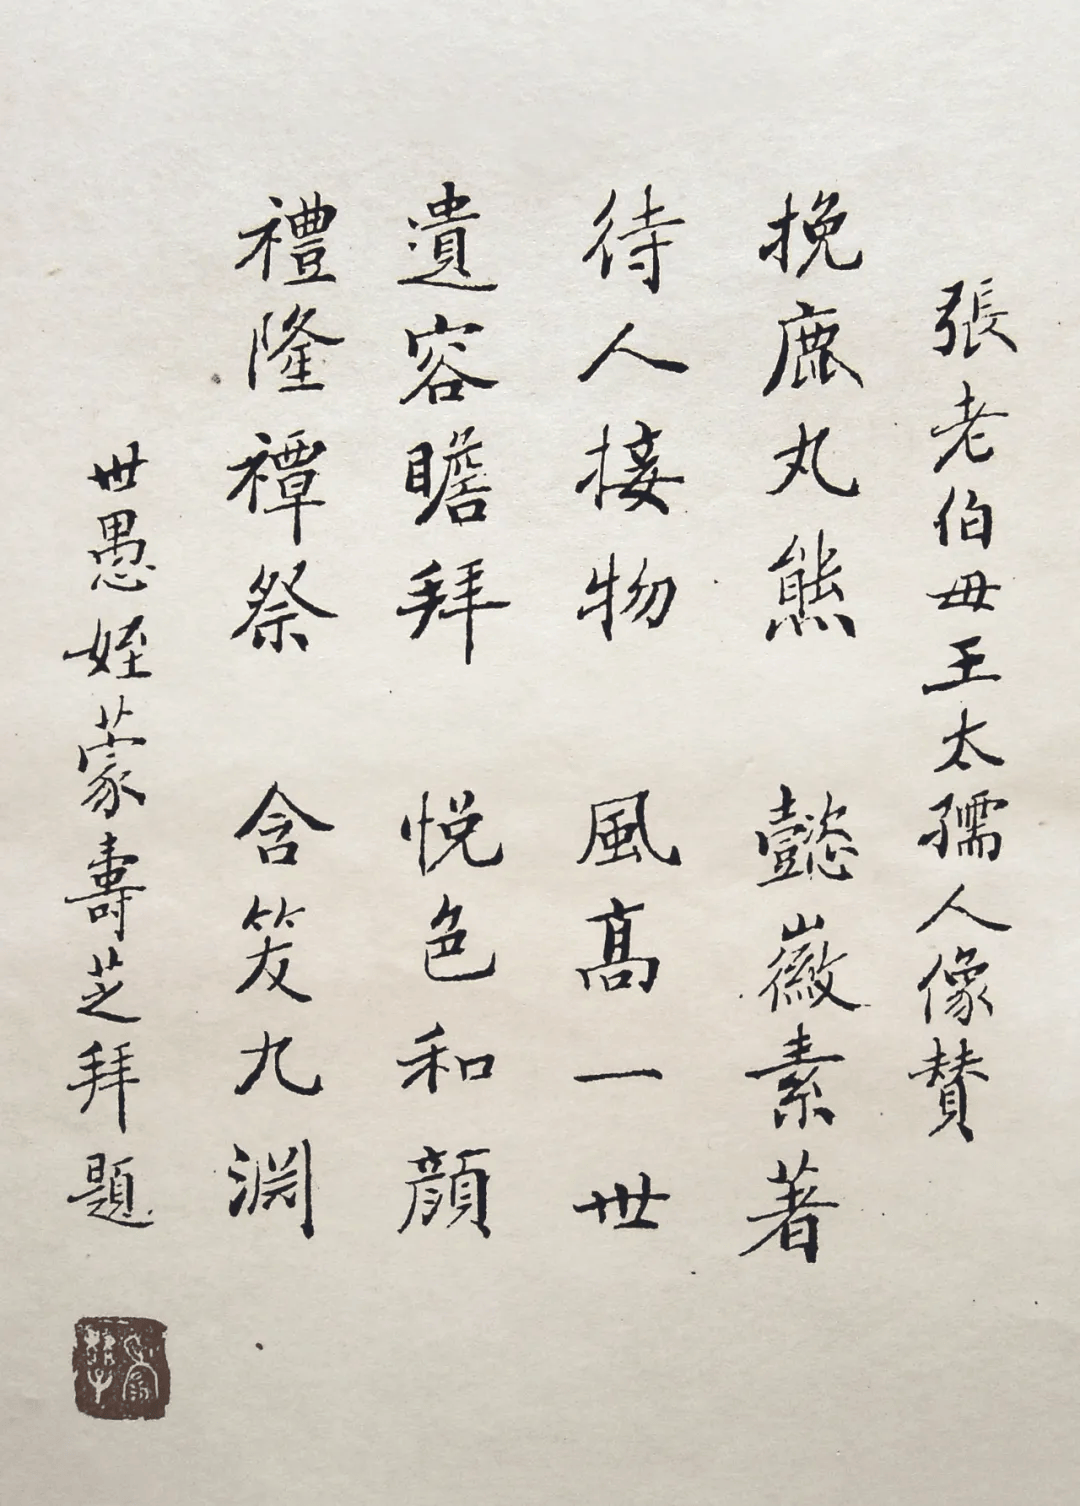 張老伯母王太孺人像贊
挽鹿丸熊 懿徽素著
待人接物 風高一世
遺容瞻拜 悅色和顔
禮隆禫祭 含笑九淵
世愚姪蒙壽芝拜題